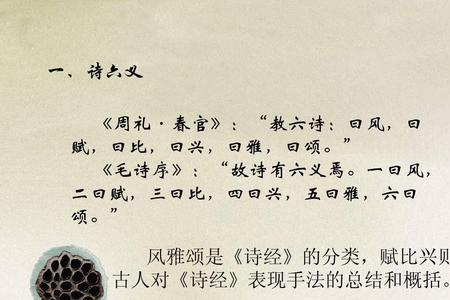 一、诗六义
《周礼·春官》：“教六诗：曰风，曰
赋，曰比，曰兴，曰雅，曰颂。”
《毛诗序》：“故诗有六义焉。一曰风，
二曰赋，三曰比，四曰兴，五曰雅，六曰
颂。”
风雅颂是《诗经》的分类，赋比兴则
古人对《诗经》表现手法的总结和概括。